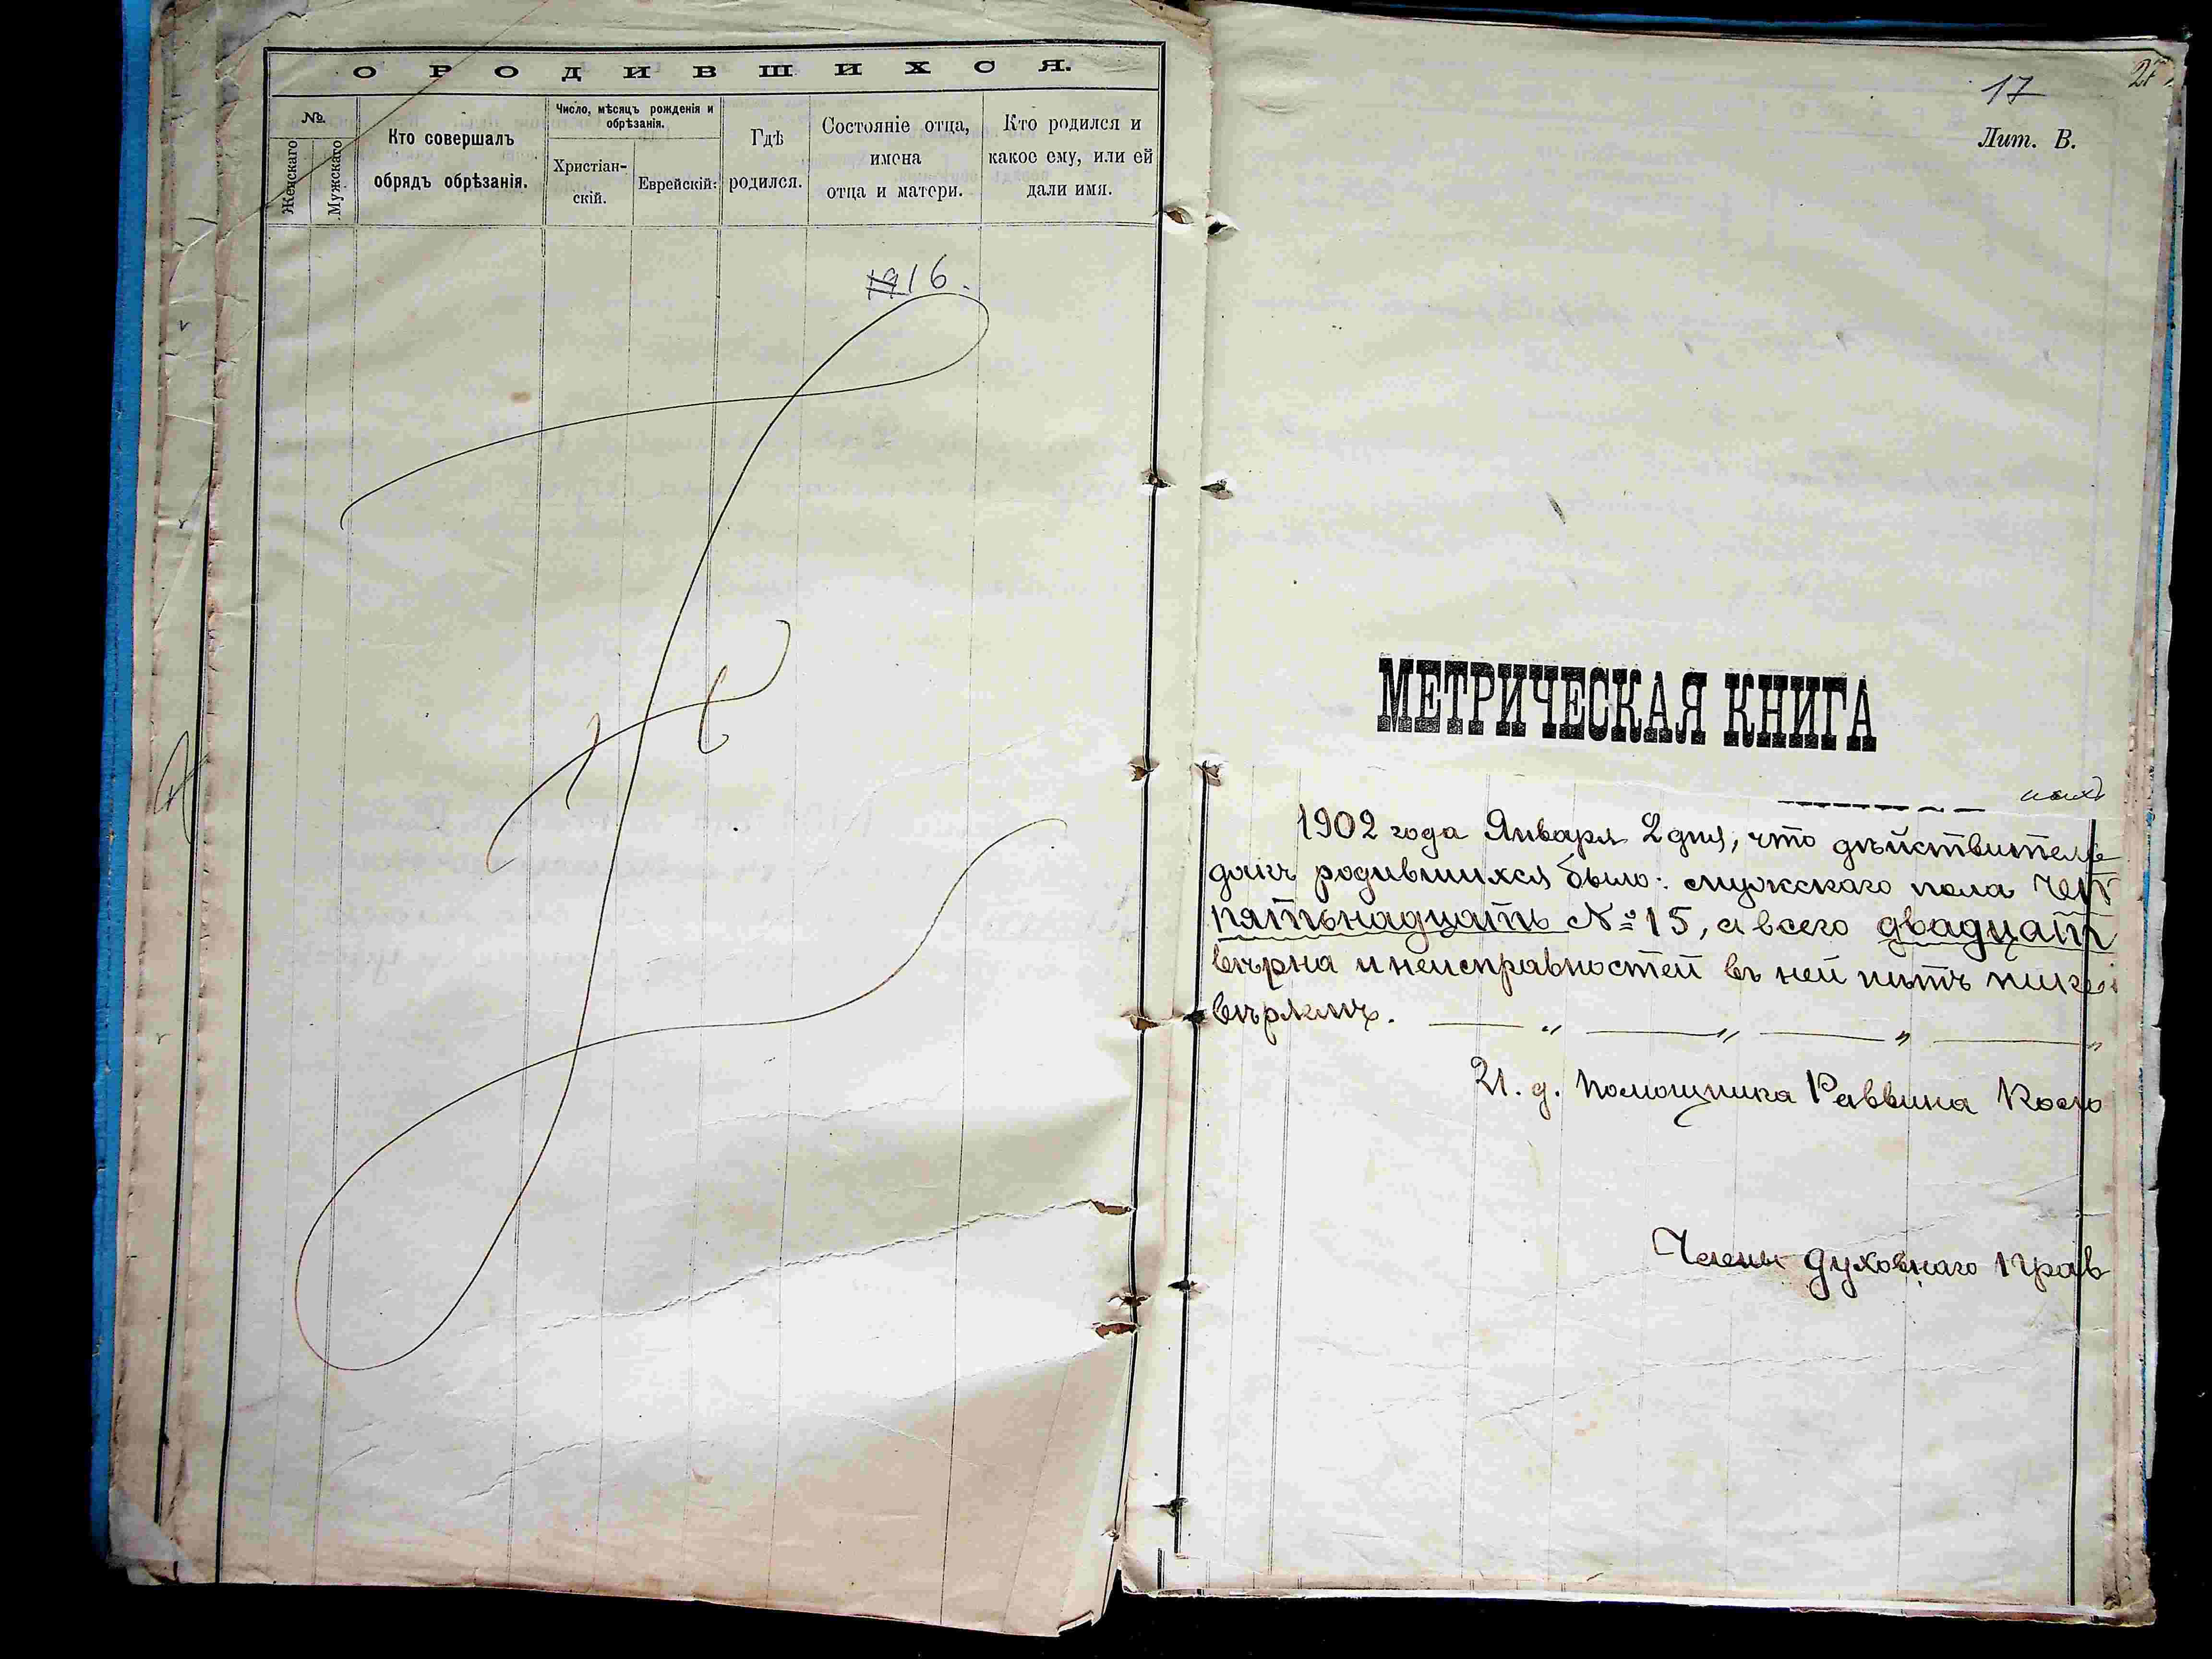 О РОДИВШИХСЯ.
№.
Женскаго
Мужскаго
Кто совершалъ
обрядъ обрѣзанія.
Число, мѣсяцъ рожденія и
обрѣзанія.
Христіан-
скій.
Еврейскій:
Гдѣ
родился.
Состояніе отца,
имена
отца и матери.
Кто родился и
какое ему, или ей
дали имя.
16.
17
27
Лит. В.
МЕТРИЧЕСКАЯ КНИГА
1902 года Января 2 дня, что дѣйствителе
родившихся было: мужскаго пола чет
пятьнадцать № 15, а всего двадцат
вѣрна и неисправностей въ ней нѣтъ
вѣряемъ.
И. д. Помощника Раввина Косо
Члены Духовнаго Прав